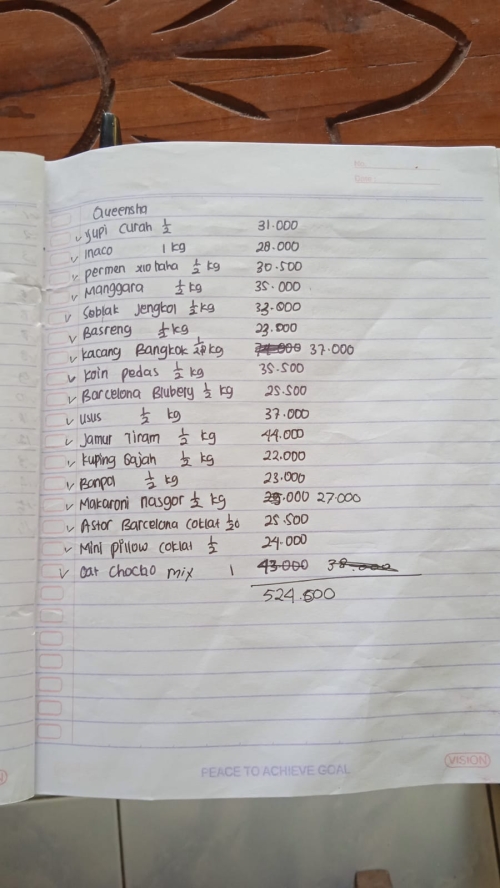 No:
Date:
Queensha
✓ yupi curah ½ 31.000
✓ Inaco 1 kg 28.000
✓ permen xiotaha ½ kg 30.500
✓ Manggara ½ kg 35.000
✓ Seblak jengkol ½ kg 33.000
✓ Basreng ½ kg 23.000
✓ kacang Bangkok ½ kg 37.000
✓ koin pedas ½ kg 35.500
✓ Barcelona Blubery ½ kg 25.500
✓ usus ½ kg 37.000
✓ Jamur Tiram ½ kg 44.000
✓ kuping Gajah ½ kg 22.000
✓ Banpol ½ kg 23.000
✓ Makaroni nasgor ½ kg 27.000
✓ Astor Barcelona Coklat ½ 25.500
✓ Mini pillow coklat ½ 24.000
✓ oat chocho mix 1 43.000 38.000
524.500
PEACE TO ACHIEVE GOAL
VISION